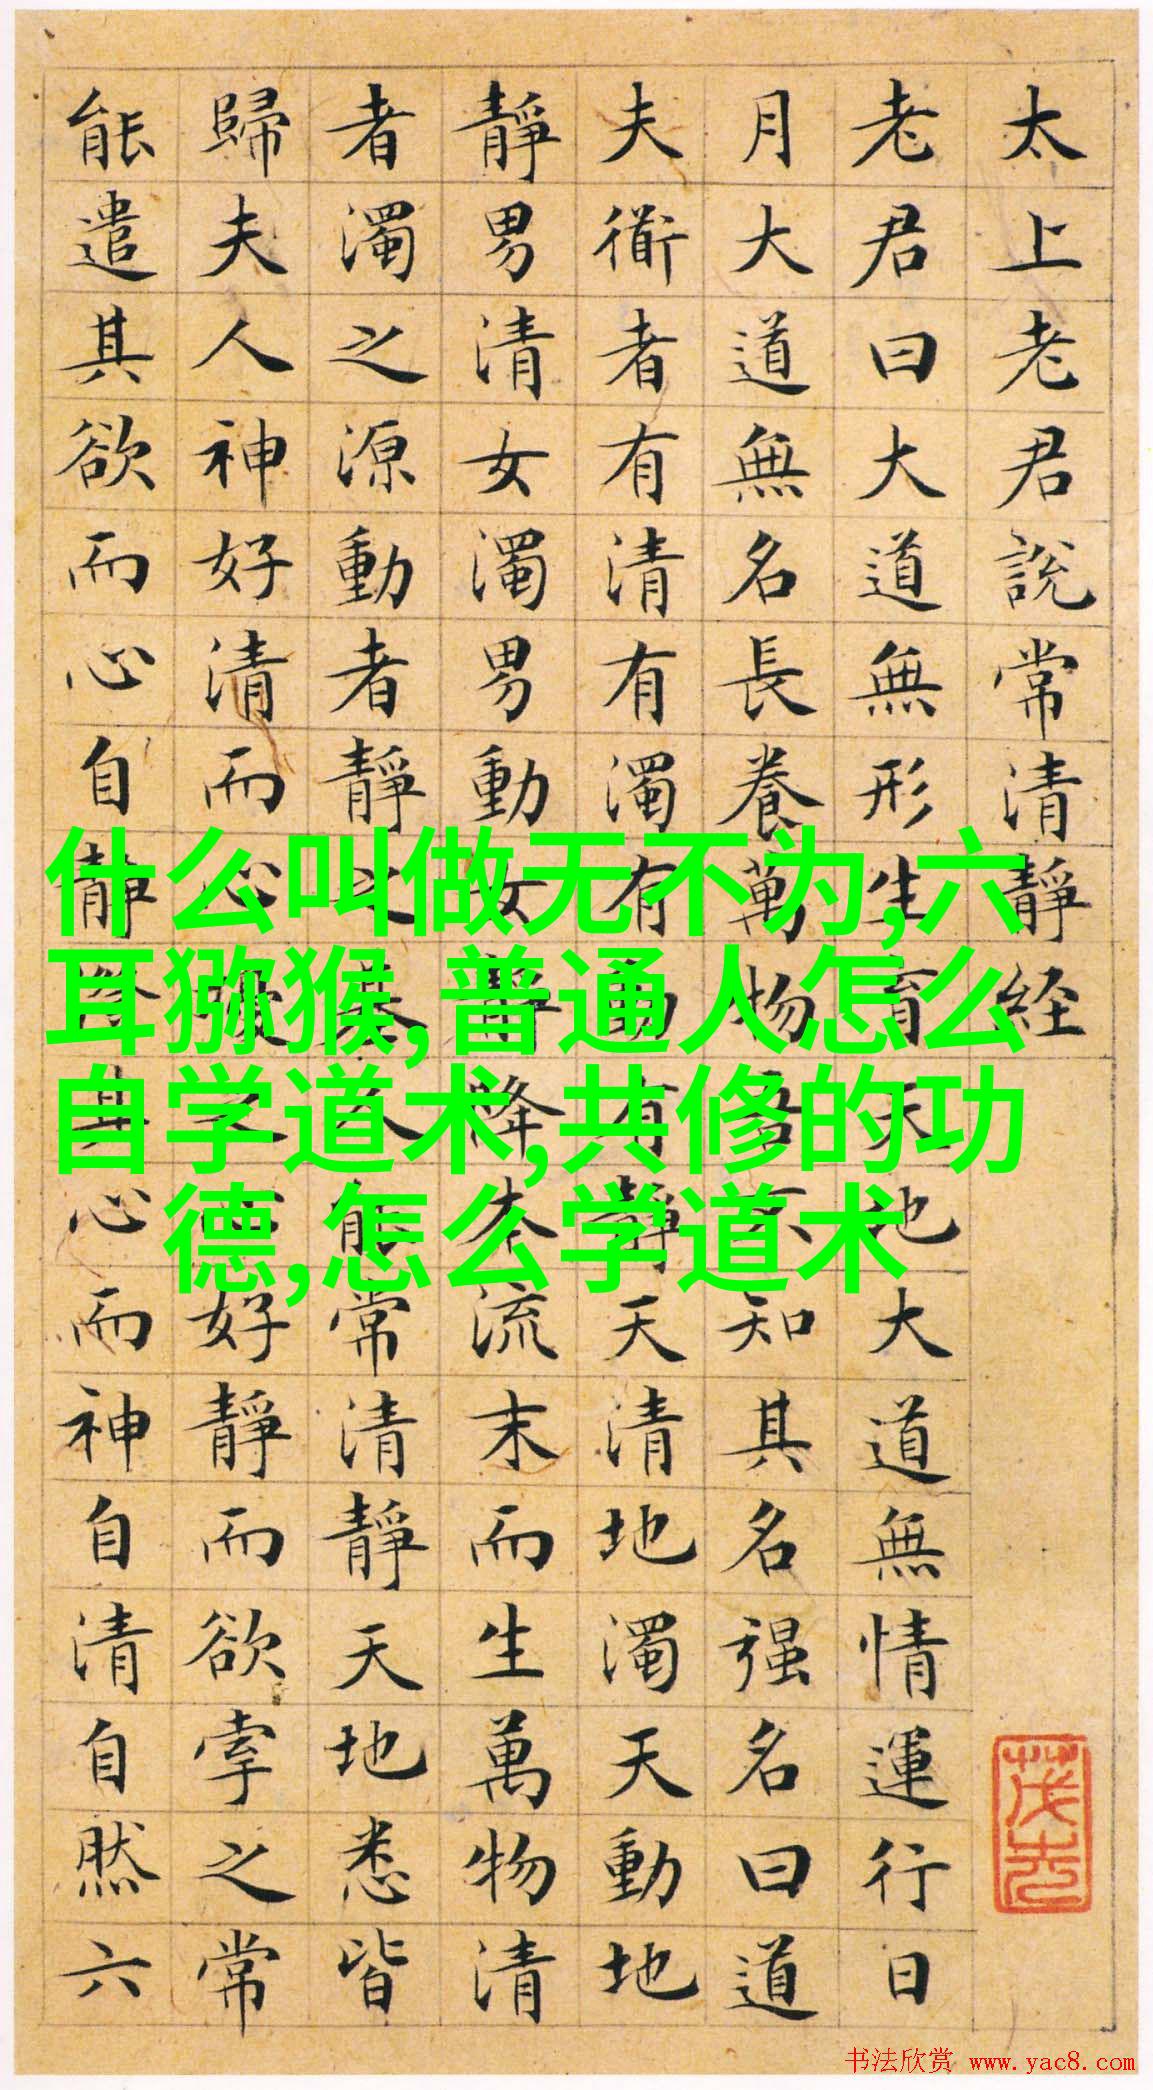 太上老君說常清靜経
老君曰大道無形生育天地大道無情運行日
月大道無名長養萬物吾不知其名强名曰道
夫衜者有清有濁有動有靜天清地濁天動地
靜男清女濁男動女靜降本流末而生萬物清
者濁之源動者靜之基人能常清靜天地悉皆
歸夫人神好清而心擾之心好靜而欲牽之常
能遣其欲而心自靜澄其心而神自清自然六
什么叫做无不为,六
耳猕猴,普通人怎么
自学道术,共修的功
德,怎么学道术
书法欣赏 www.yac8.com